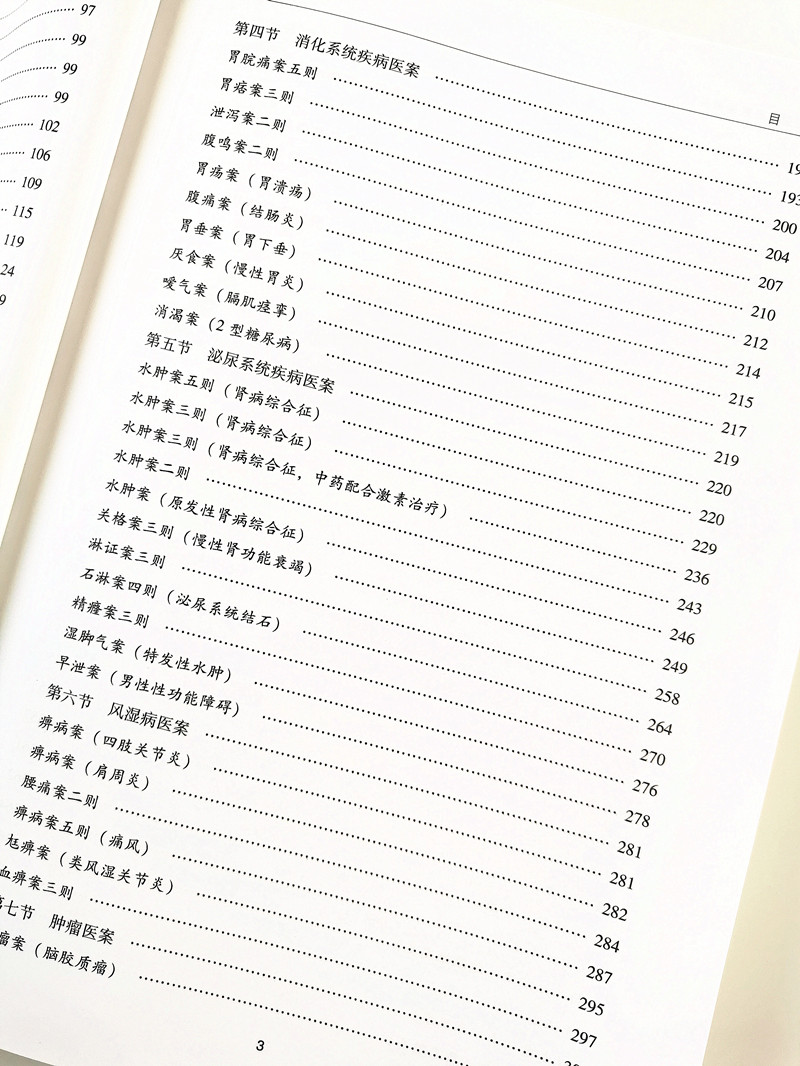 97
99
99
99
102
106
109
115
119
24
9
目
第四节 消化系统疾病医案 …… 19
胃脘痛案五则 …… 193
胃痞案三则 …… 200
泄泻案二则 …… 204
腹鸣案二则 …… 207
胃疡案（胃溃疡） …… 210
腹痛案（结肠炎） …… 212
胃垂案（胃下垂） …… 214
厌食案（慢性胃炎） …… 215
嗳气案（膈肌痉挛） …… 217
消渴案（2 型糖尿病） …… 219
第五节 泌尿系统疾病医案 …… 220
水肿案五则（肾病综合征） …… 220
水肿案三则（肾病综合征） …… 229
水肿案三则（肾病综合征，中药配合激素治疗） …… 236
水肿案二则 …… 243
水肿案（原发性肾病综合征） …… 246
关格案三则（慢性肾功能衰竭） …… 249
淋证案三则 …… 258
石淋案四则（泌尿系统结石） …… 264
精癃案三则 …… 270
湿脚气案（特发性水肿） …… 276
早泄案（男性性功能障碍） …… 278
第六节 风湿病医案 …… 281
痹病案（四肢关节炎） …… 281
痹病案（肩周炎） …… 282
腰痛案二则 …… 284
痹病案五则（痛风） …… 287
尪痹案（类风湿关节炎） …… 295
血痹案三则 …… 297
第七节 肿瘤医案 ……
瘤案（脑胶质瘤） ……
3